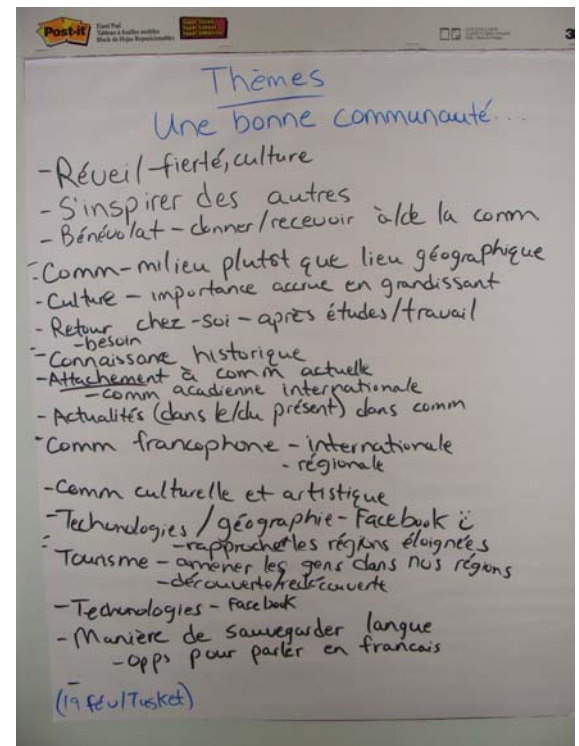 Post-it
Easel Pad
Tableau à feuilles mobiles
Block de Hojas Reposicionables
Thèmes
Une bonne communauté...
- Réveil - fierté, culture
- S'inspirer des autres
- Bénévolat - donner/recevoir à/de la comm
- Comm - milieu plutôt que lieu géographique
- Culture - importance accrue en grandissant
- Retour chez-soi - après études/travail
- besoin
- Connaissance historique
- Attachement à comm actuelle
- comm acadienne internationale
- Actualités (dans le/du présent) dans comm
- Comm francophone - internationale
- régionale
- Comm culturelle et artistique
- Technologies / géographie - Facebook
- rapprocher les régions éloignées
- Tourisme - amener les gens dans nos régions
- découverte/redécouverte
- Technologies - Facebook
- Manière de sauvegarder langue
- opps pour parler en francais
(19 fév/Tusket)